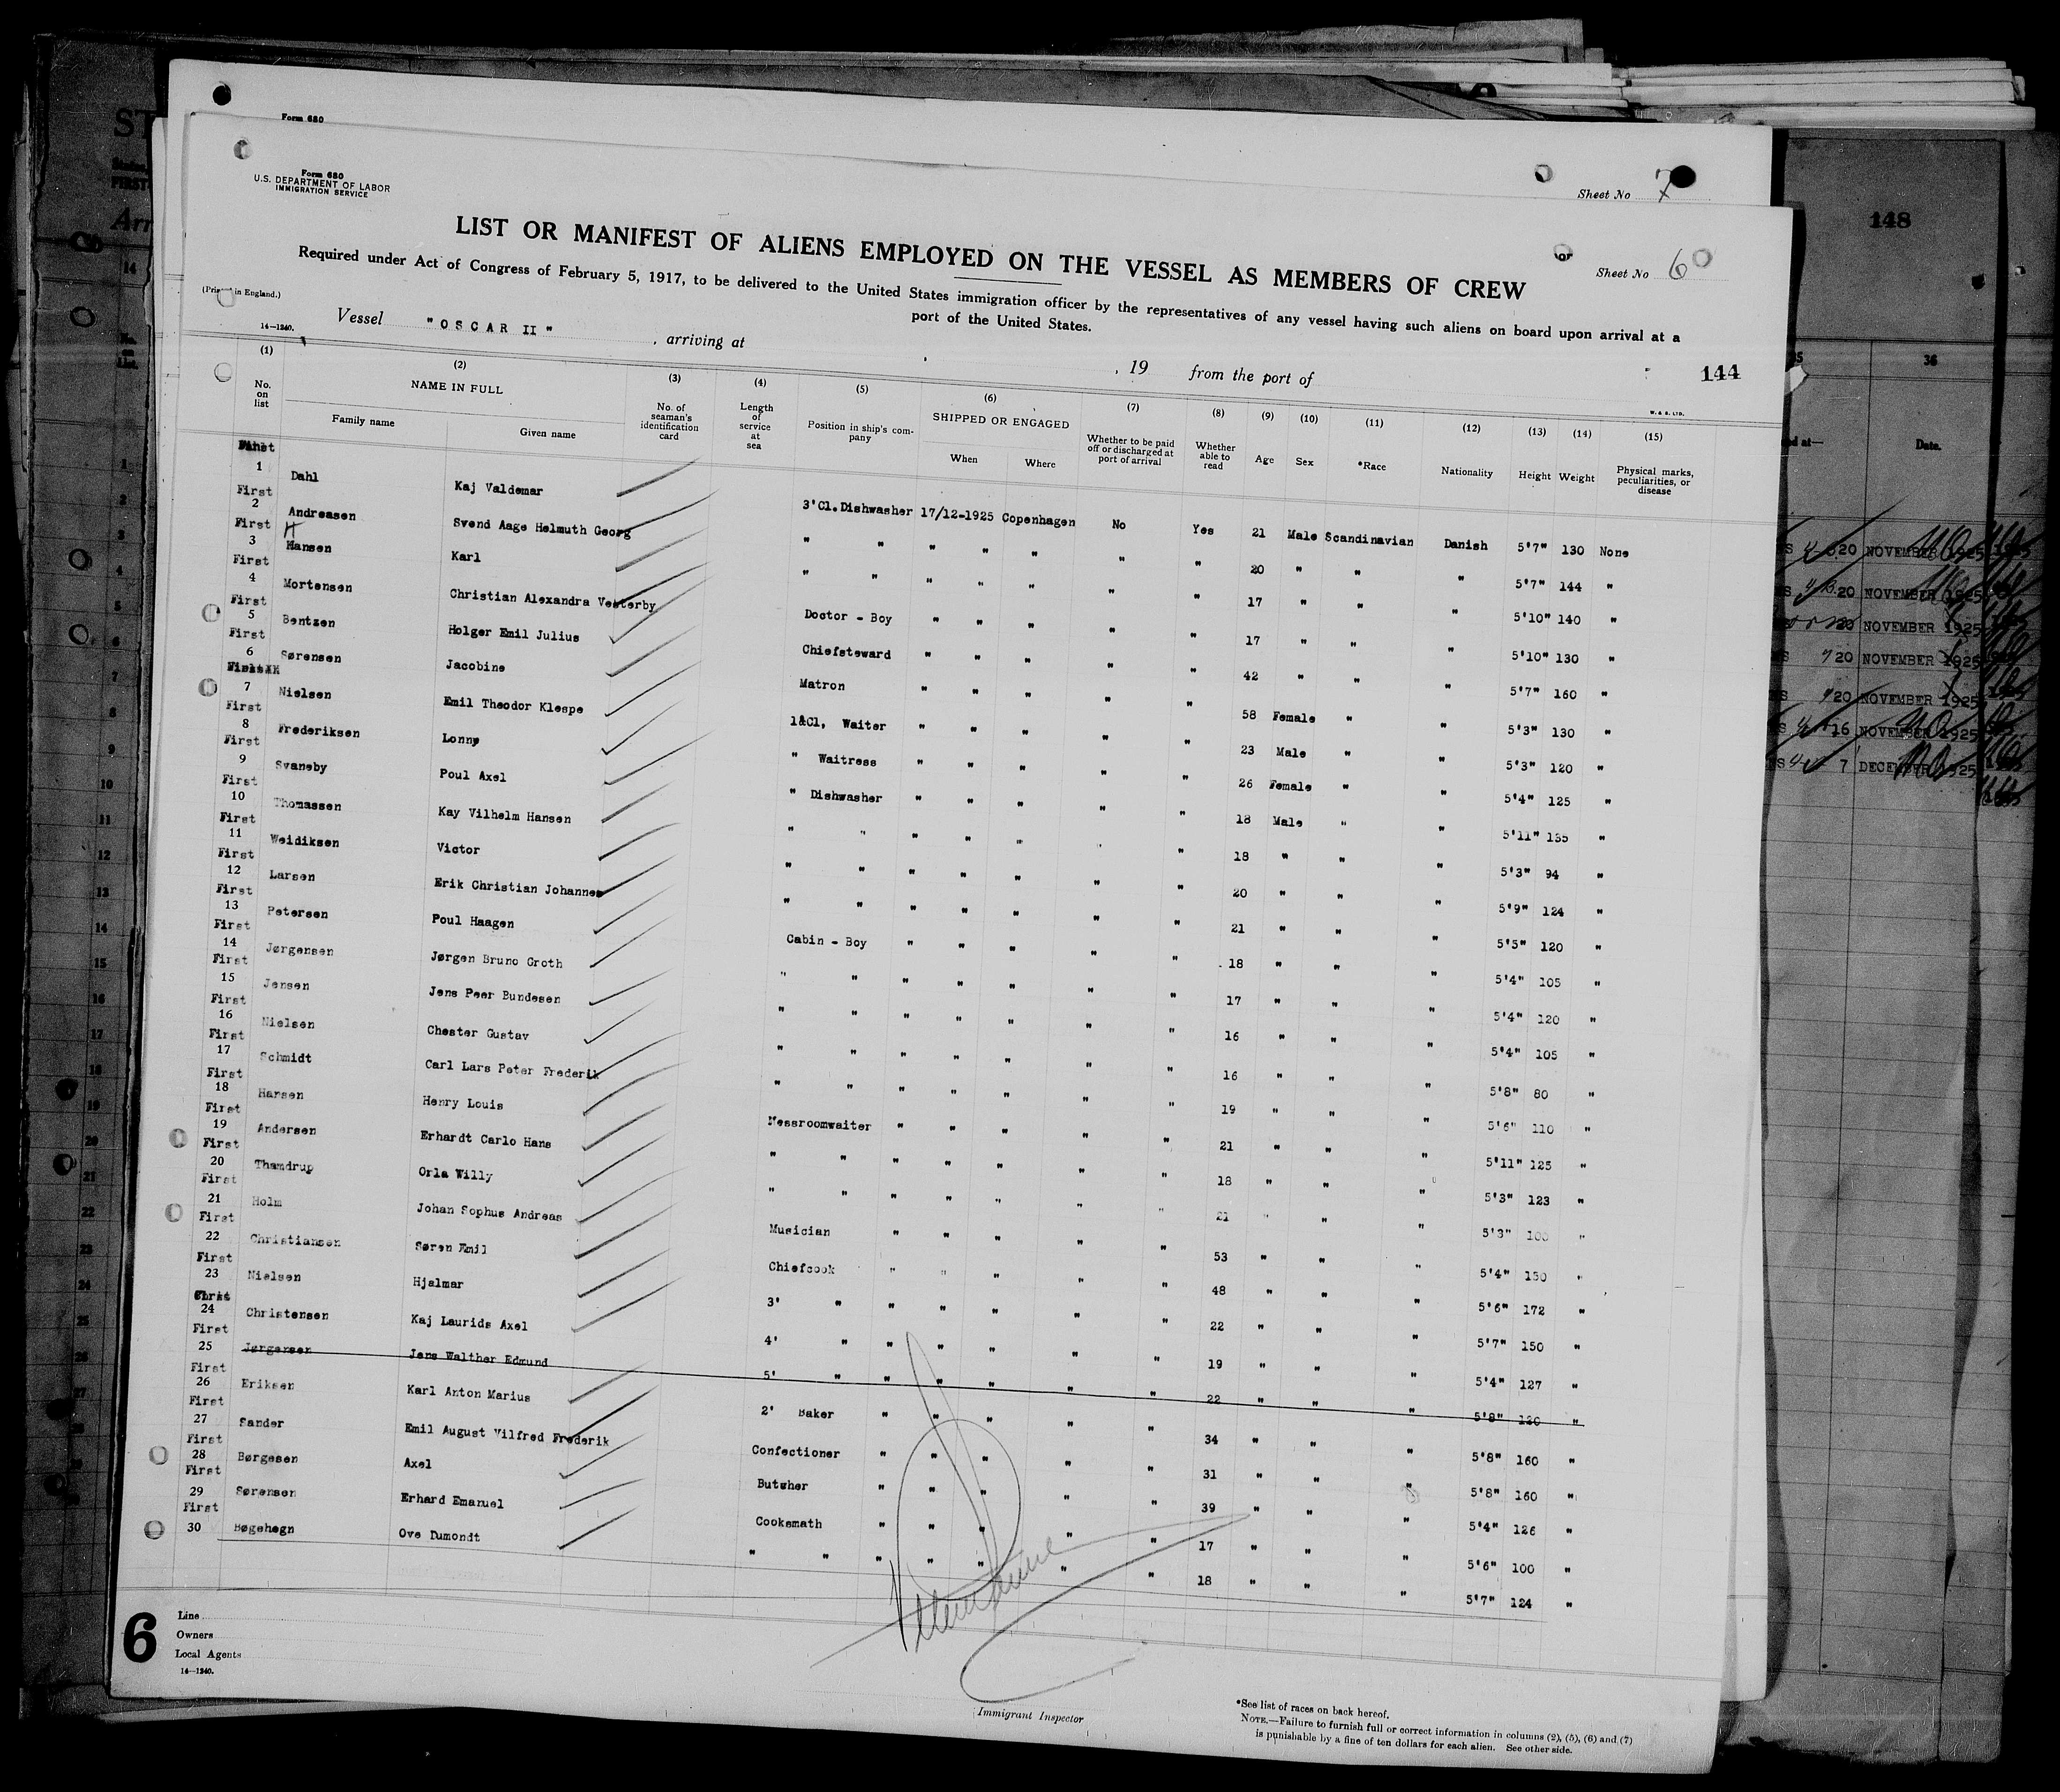 Form 680
Form 680
U.S. DEPARTMENT OF LABOR
IMMIGRATION SERVICE
Sheet No 7
LIST OR MANIFEST OF ALIENS EMPLOYED ON THE VESSEL AS MEMBERS OF CREW
or
Sheet No 6
Required under Act of Congress of February 5, 1917, to be delivered to the United States immigration officer by the representatives of any vessel having such aliens on board upon arrival at a
port of the United States.
14—1240.
Vessel "OSCAR II" , arriving at , 19 from the port of
144
W. & S. LTD.
(1) No. on list (2) NAME IN FULL Family name Given name (3) No. of seaman's identification card (4) Length of service at sea (5) Position in ship's company (6) SHIPPED OR ENGAGED When Where (7) Whether to be paid off or discharged at port of arrival (8) Whether able to read (9) Age (10) Sex (11) *Race (12) Nationality (13) Height (14) Weight (15) Physical marks, peculiarities, or disease
1 Dahl Kaj Valdemar 3'Cl.Dishwasher 17/12-1925 Copenhagen No Yes 21 Male Scandinavian Danish 5'7" 130 None
First 2 Andreasen Svend Aage Helmuth Georg " " " " " " " 20 " " " 5'7" 144 "
First 3 Hansen Karl " " " " " " " 17 " " " 5'10" 140 "
First 4 Mortensen Christian Alexandra Vesterby Doctor - Boy " " " " " 17 " " " 5'10" 130 "
First 5 Bentzen Holger Emil Julius Chiefsteward " " " " " 42 " " " 5'7" 160 "
First 6 Sørensen Jacobine Matron " " " " " 58 Female " " 5'3" 130 "
7 Nielsen Emil Theodor Klespe 1&Cl, Waiter " " " " " 23 Male " " 5'3" 120 "
First 8 Frederiksen Lonny " Waitress " " " " " 26 Female " " 5'4" 125 "
First 9 Svaneby Poul Axel " Dishwasher " " " " " 18 Male " " 5'11" 135 "
First 10 Thomassen Kay Vilhelm Hansen " " " " " " " 18 " " " 5'3" 94 "
First 11 Weidiksen Victor " " " " " " " 20 " " " 5'9" 124 "
First 12 Larsen Erik Christian Johannes " " " " " " " 21 " " " 5'5" 120 "
First 13 Petersen Poul Haagen Cabin - Boy " " " " " 18 " " " 5'4" 105 "
First 14 Jørgensen Jørgen Bruno Groth " " " " " " " 17 " " " 5'4" 120 "
First 15 Jensen Jens Peer Bundesen " " " " " " " 16 " " " 5'4" 105 "
First 16 Nielsen Chester Gustav " " " " " " " 16 " " " 5'8" 80 "
First 17 Schmidt Carl Lars Peter Frederik " " " " " " " 19 " " " 5'6" 110 "
First 18 Hansen Henry Louis Messroomwaiter " " " " " 21 " " " 5'11" 125 "
First 19 Andersen Erhardt Carlo Hans " " " " " " " 18 " " " 5'3" 123 "
First 20 Thamdrup Orla Willy " " " " " " " 21 " " " 5'3" "
First 21 Holm Johan Sophus Andreas Musician " " " " " 53 " " " 5'4" 130 "
First 22 Christiansen Søren Emil Chiefcook " " " " " 48 " " " 5'6" 172 "
First 23 Nielsen Hjalmar 3' " " " " " " 22 " " " 5'7" 150 "
24 Christensen Kaj Laurids Axel 4' " " " " " " 19 " " " 5'4" 127 "
First 25 Jørgensen Jens Walther Edmund 5' " " " " " " 22 " " " 5'8" "
First 26 Eriksen Karl Anton Marius 2' Baker " " " " " 34 " " " 5'8" 160 "
First 27 Sander Emil August Vilfred Frederik Confectioner " " " " " 31 " " " 5'8" 160 "
First 28 Børgesen Axel Butcher " " " " " 39 " " " 5'4" 126 "
First 29 Sørensen Erhard Emanuel Cooksmath " " " " " 17 " " " 5'6" 100 "
First 30 Bøgehegn Ove Dumondt " " " " " " " 18 " " " 5'7" 124 "
6
Line
Owners
Local Agents
14—1240.
Immigrant Inspector
*See list of races on back hereof.
NOTE.—Failure to furnish full or correct information in columns (2), (5), (6) and (7)
is punishable by a fine of ten dollars for each alien. See other side.
148
36
Date.
20 NOVEMBER 1925
20 NOVEMBER 1925
20 NOVEMBER 1925
20 NOVEMBER 1925
20 NOVEMBER 1925
16 NOVEMBER 1925
7 DECEMBER 1925